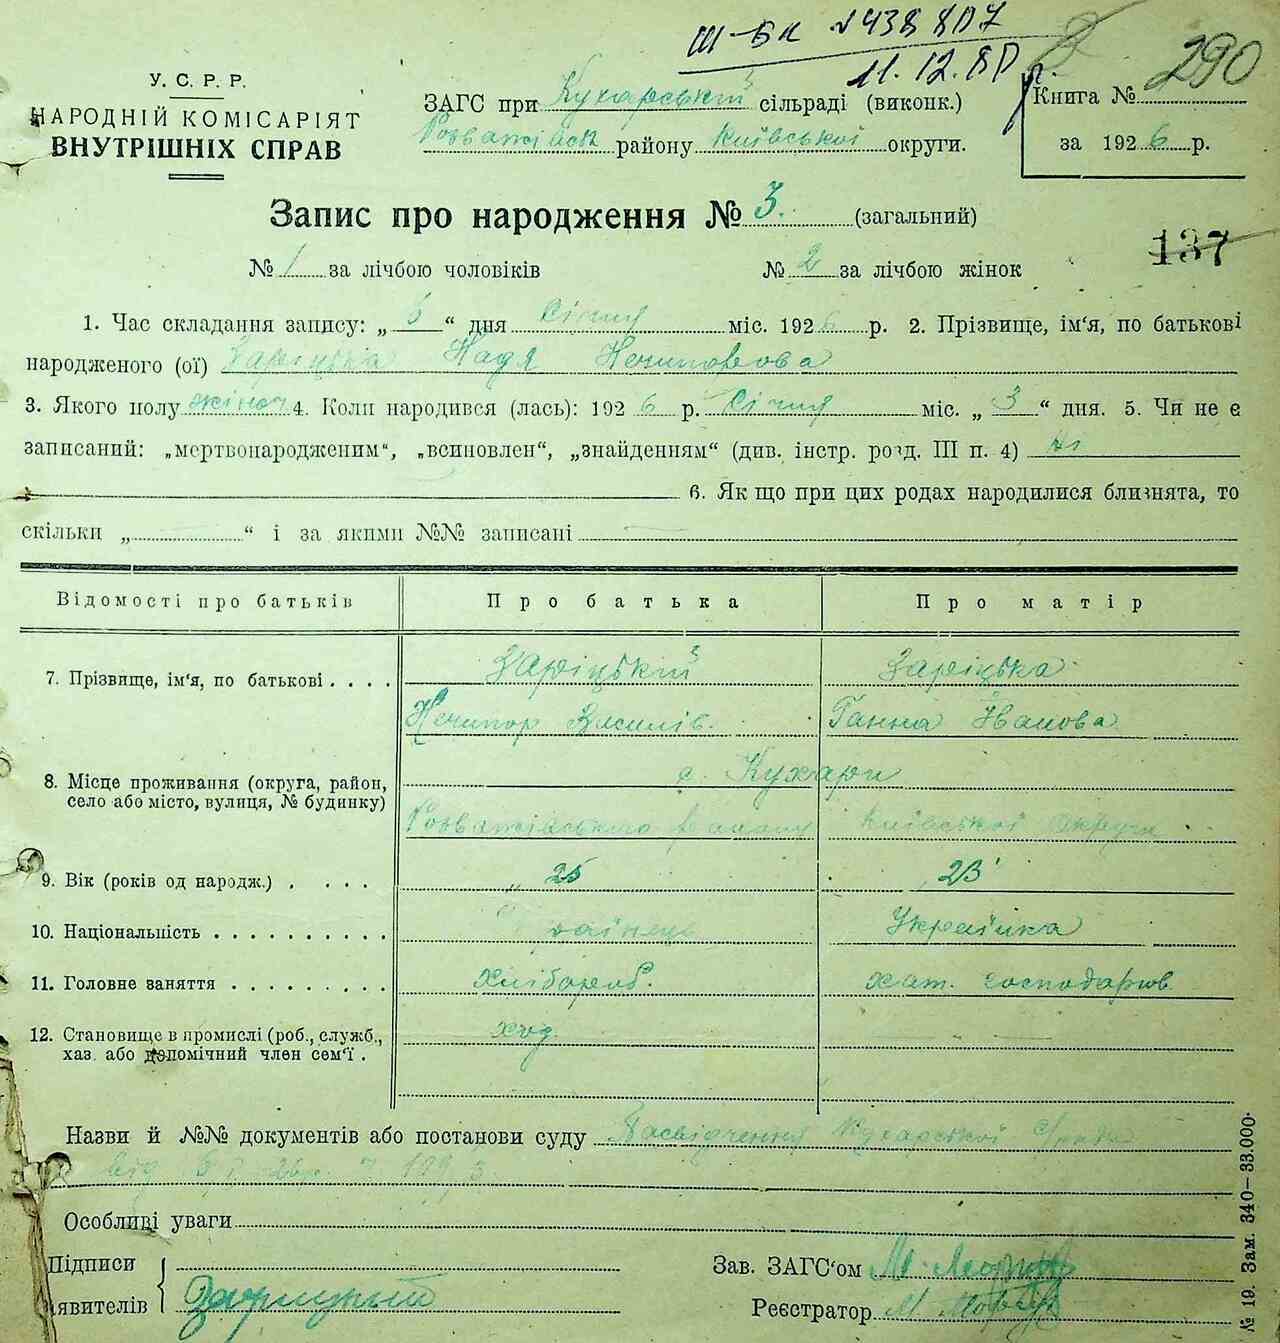 Ш-БК №438807
11.12.80 р.
290
У. С. Р. Р.
НАРОДНІЙ КОМІСАРІЯТ
ВНУТРІШНІХ СПРАВ
ЗАГС при Кухарській сільраді (виконк.)
Розважівськ району Київської округи.
Книга №
за 1926 р.
Запис про народження № 3. (загальний)
137
№ 1 за лічбою чоловіків № 2 за лічбою жінок
1. Час складання запису: „ 6 “ дня Січня міс. 1926 р. 2. Прізвище, ім‘я, по батькові
народженого (ої) Заріцька Надя Нечипорова
3. Якого полу жіноч 4. Коли народився (лась): 1926 р. Січня міс. „ 3 “ дня. 5. Чи не є
записаний: „мертвонародженим“, „всиновлен“, „знайденням“ (див. інстр. розд. III п. 4) ні
6. Як що при цих родах народилися близнята, то
скільки „ “ і за якими №№ записані
Відомості про батьків Про батька Про матір
7. Прізвище, ім‘я, по батькові Заріцький Заріцька
Нечипор Василів. Ганна Іванова
8. Місце проживання (округа, район, с. Кухари
село або місто, вулиця, № будинку)
Розважівського району Київської округи
9. Вік (років од народж.) 25 23
10. Національність Українець Українка
11. Головне заняття хлібороб. хат. господарюв.
12. Становище в промислі (роб., служб., хоз.
хаз. або допомічний член сем‘ї.
Назви й №№ документів або постанови суду Посвідчення Кухарської с/ради
від
Особливі уваги
Підписи
явителів Зарицький
Зав. ЗАГС‘ом М.
Реєстратор М.
№ 19. Зам. 340—33.000.